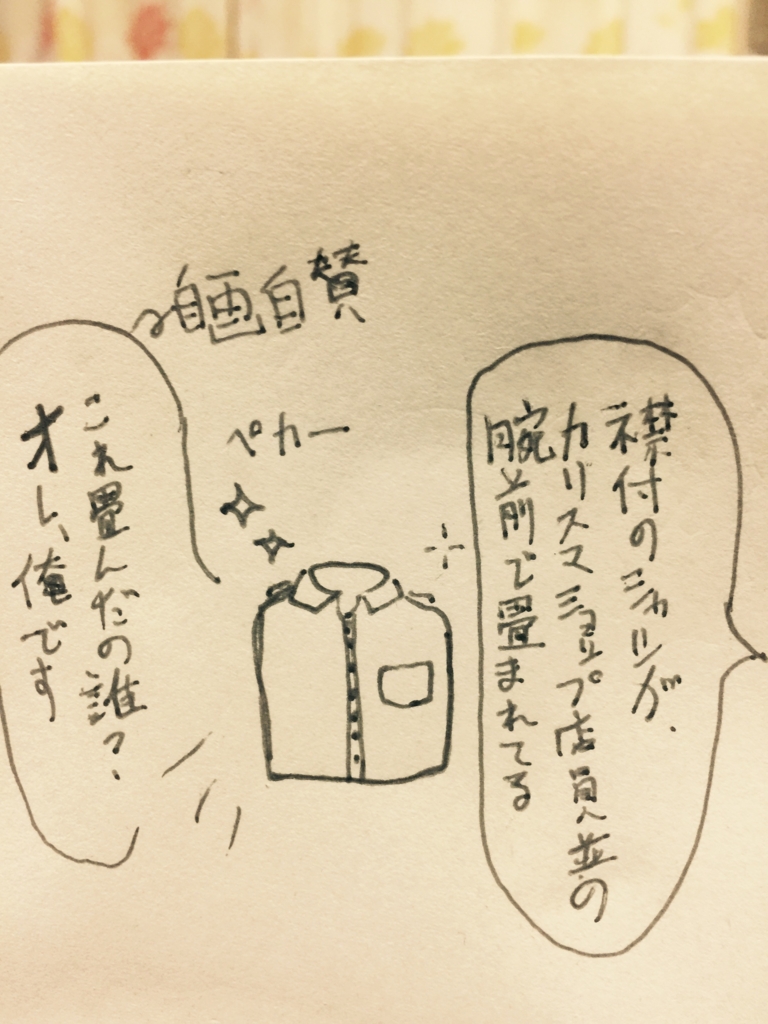 襟付のシャツが、
カリスマショップ店員並の
腕前で畳まれてる
ペカー
自画自賛
これ畳んだの誰?、
オレ、俺です